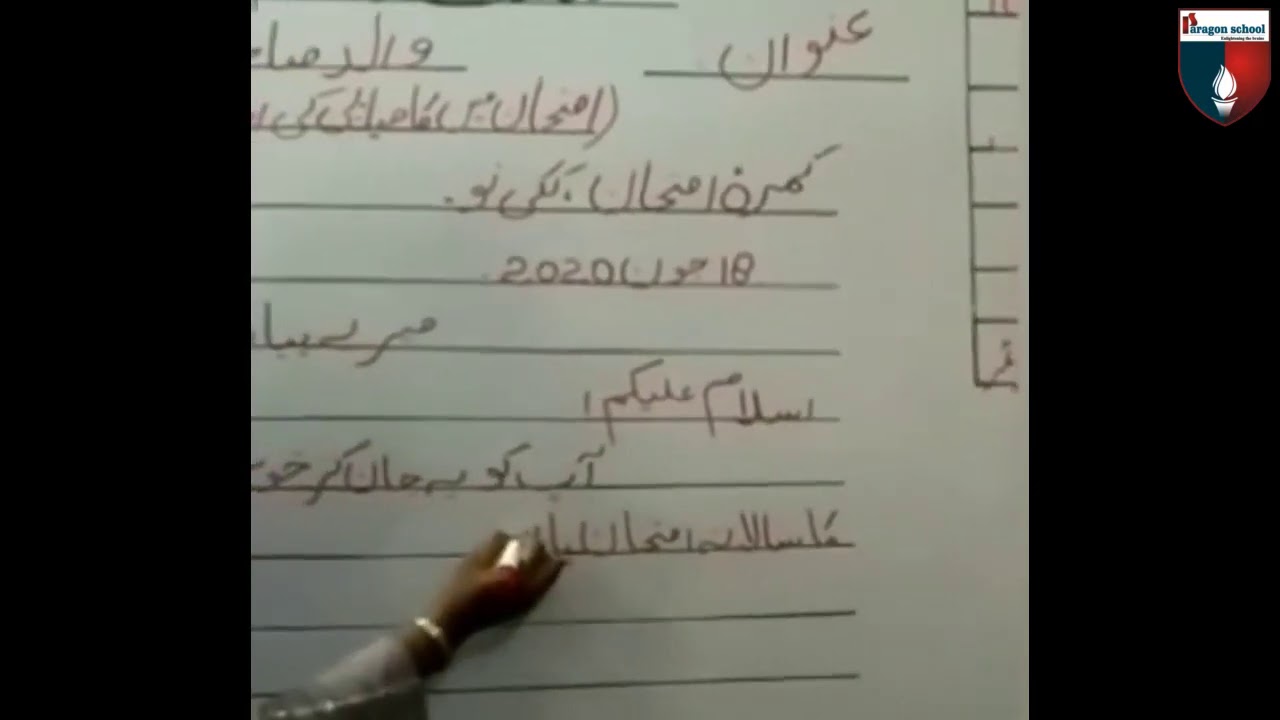 Paragon school
Enlightening the brains
عنوان والد صا
(امتحان میں کامیابی کی
کمرۂ امتحان، کئی نو۔
18 جون 2020
میرے پیا
اسلام علیکم!
آپ کو یہ جان کر خو
کا سالانہ امتحان لیا